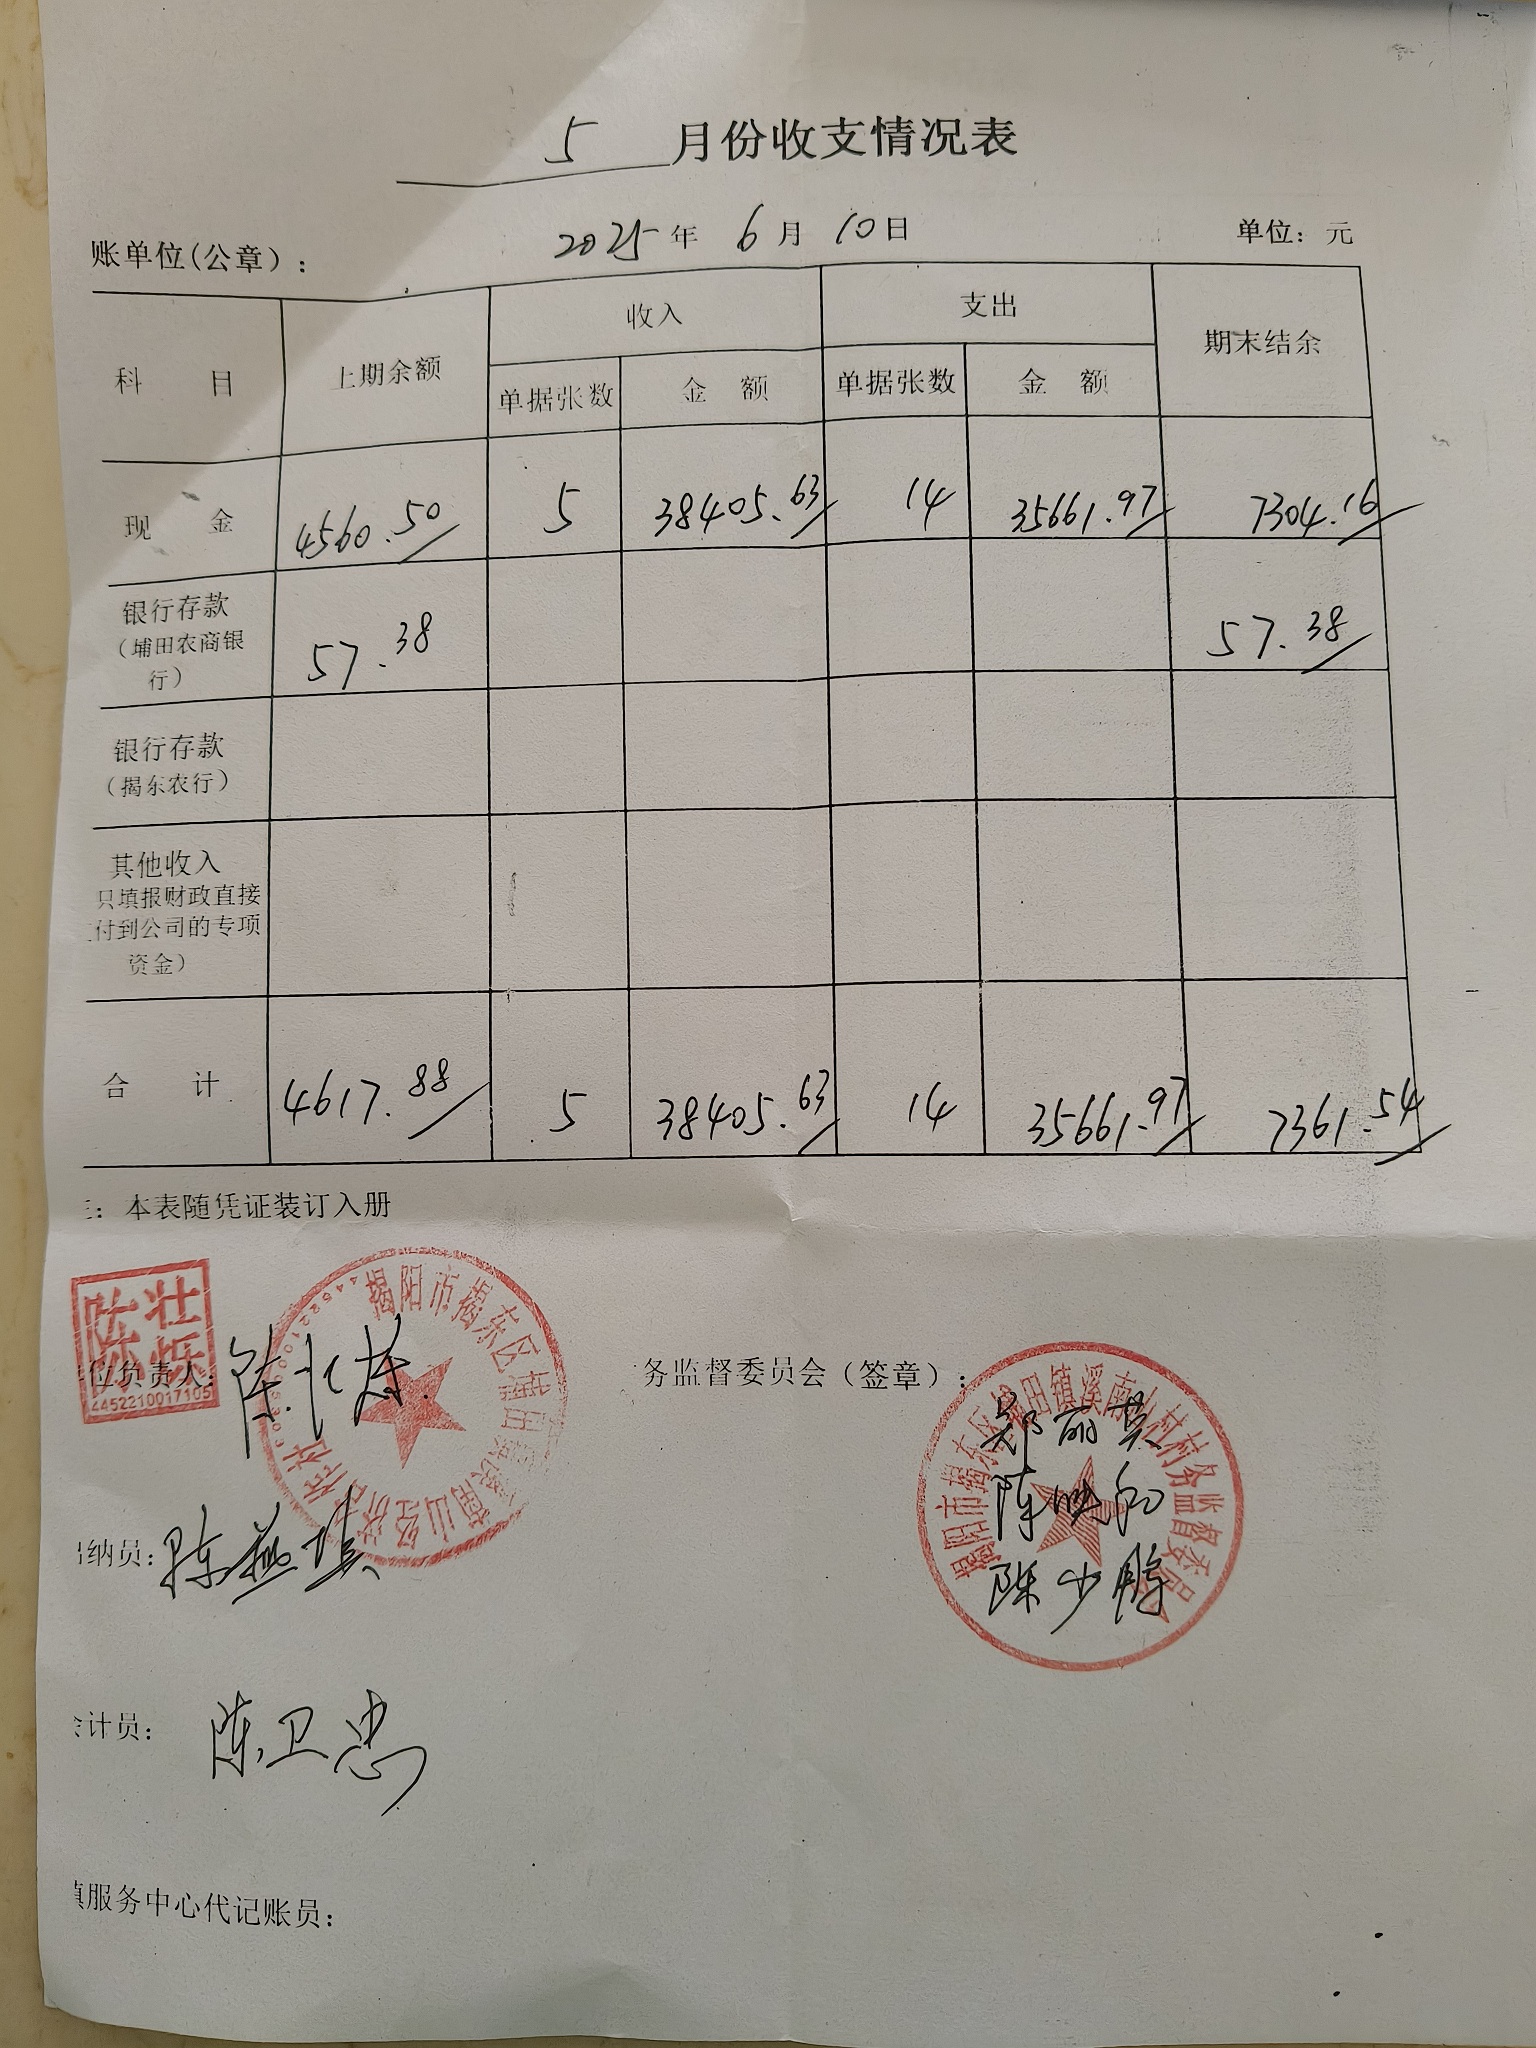 5 月份收支情况表
账单位(公章)： 2025年 6月 10日 单位：元
科 目 上期余额 收入 支出 期末结余
单据张数 金 额 单据张数 金 额
现 金 4560.50 5 38405.63 14 35661.97 7304.16
银行存款
（埔田农商银
行）
57.38 57.38
银行存款
（揭东农行）
其他收入
只填报财政直接
付到公司的专项
资金）
合 计 4617.88 5 38405.63 14 35661.97 7361.54
：本表随凭证装订入册
陈壮烁
4452210017105
位负责人：
揭阳市揭东区埔田镇溪南山经济合作社
务监督委员会（签章）：
揭阳市揭东区埔田镇溪南山村村务监督委员会
郑丽
陈
陈少鹏
纳员：陈燕
计员：陈卫忠
镇服务中心代记账员：